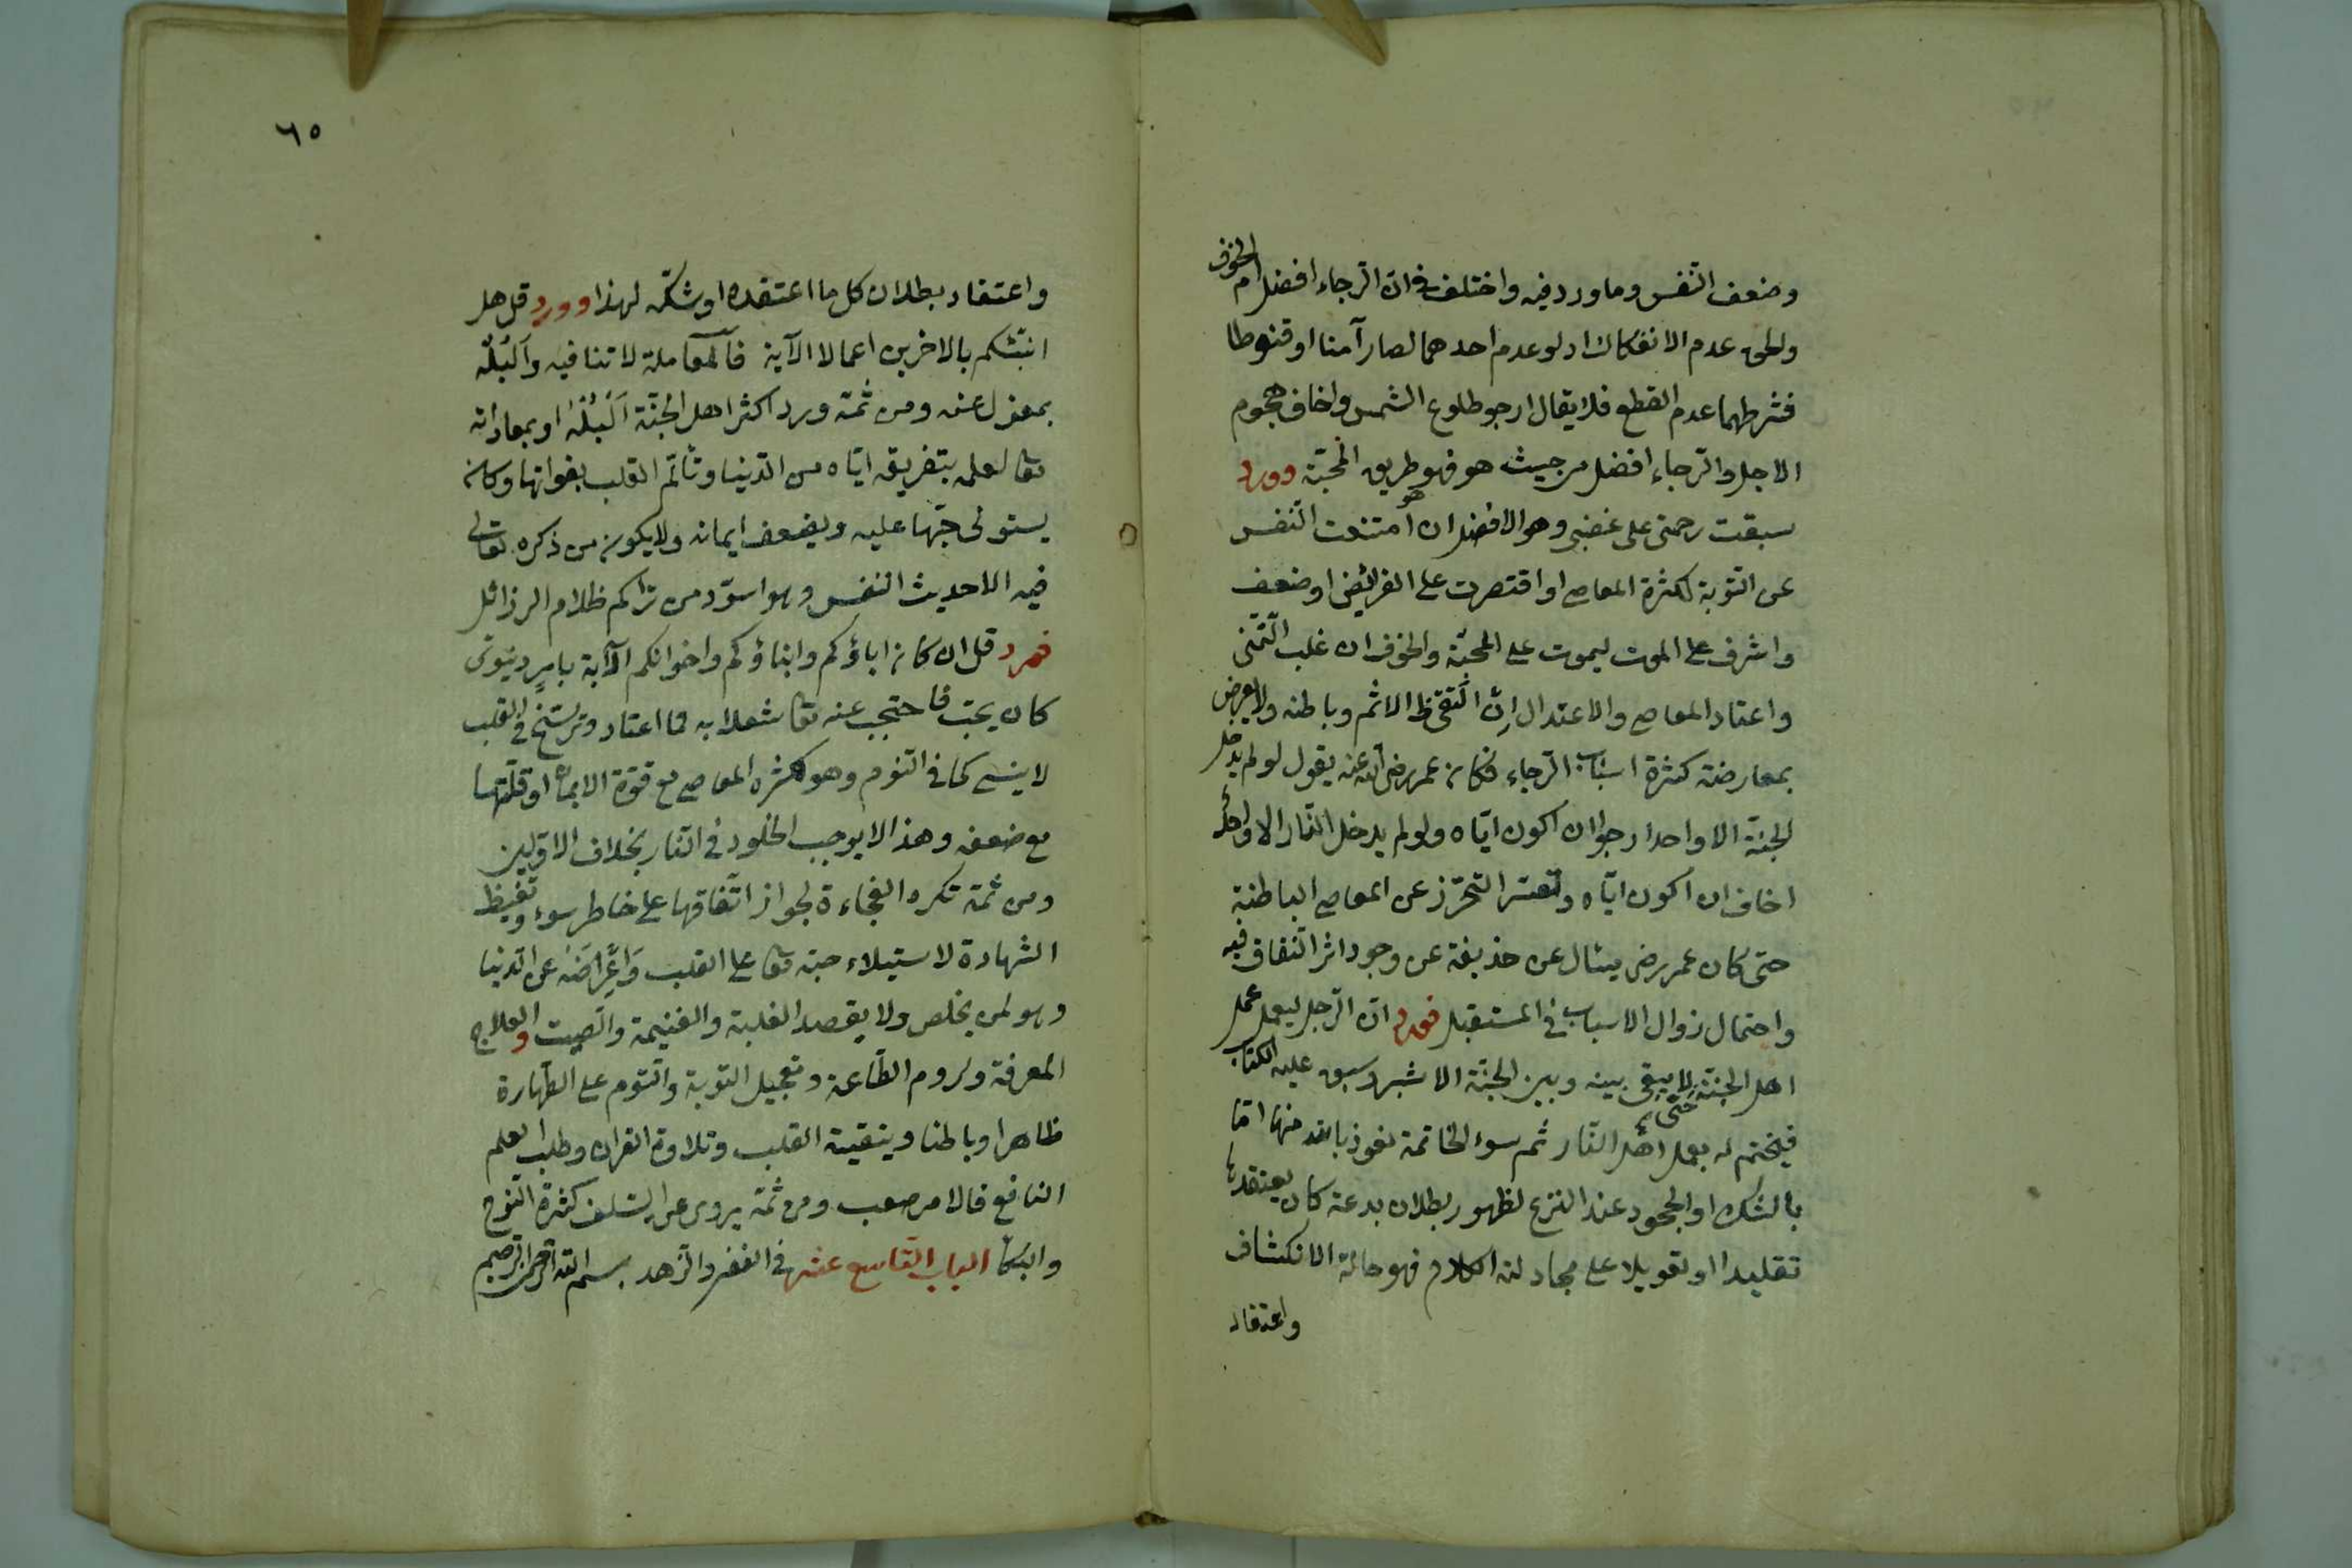 وضعف النفس وما ورد فيه واختلف في ان الرجاء افضل ام الخوف
والحق عدم الانفكاك اذ لو عدم احدهما لصار آمنا او قنوطا
فشرطهما عدم القطع فلا يقال ارجو طلوع الشمس واخاف هجوم
الاجل والرجاء افضل من حيث هو فهو طريق المحبّة وورد
سبقت رحمتى على غضبى وهو الافضل ان امتنعت النفس
عن التوبة لكثرة المعاصى او اقتصرت على الفرائض او ضعف
واشرف على الموت ليموت على المحبّة والخوف ان غلب التّمنّى
واعتاد المعاصى والاعتدال ان الاثم وباطنه ولا يعرض
بمعارضة كثرة اسباب الرجاء فكان عمر رضى الله عنه يقول لو لم يدخل
الجنّة الا واحدا رجو ان اكون ايّاه ولو لم يدخل النّار الا واحدا
اخاف ان اكون ايّاه وتعسّر التحرّز عن المعاصى الباطنة
حتى كان عمر رض يسئال عن حذيفة عن وجود اثر النّفاق فيه
واحتمال زوال الاسباب فى المستقبل فورد انّ الرّجل ليعمل عمل
اهل الجنّة حتّى لا يبقى بينه وبين الجنّة الا شبر وسبق عليه الكتاب
فيختم له بعمل اهل النّار ثم سوء الخاتمة نعوذ بالله منها امّا
بالشك او الجحود عند النزع لظهور بطلان بدعة كان يعتقدها
تقليدا او تعويلا على مجادلة الكلام فهو حالة الانكشاف
واعتقاد
٦٥
واعتقاد بطلان كل ما اعتقده او شكّه لهذا وورد قل هل
انبئكم بالاخرين اعمالا الآية فالمعاملة لا تنافيه والبُله
بمعزل عنه ومن ثمّة ورد اكثر اهل الجنّة البُله او بمعاداته
تعا لعلمه بتفريقه ايّاه من الدّنيا وتألّم القلب بفواتها وكان
يستولى حبّها عليه ويضعف ايمانه ولا يكون من ذكره تعالى
فيه الا حديث النفس وهو اسوّد من تراكم ظلام الرذائل
فورد قل ان كان اباؤكم وابناؤكم واخوانكم الآية بامر دنيوى
كان يحبّ فاحتجب عنه تعا شغلا به فما اعتاد وترسّخ فى القلب
لا ينسى كما فى النّوم وهو لكثرة المعاصى مع قوّة الايمان او قلّتها
مع ضعفه وهذا لا يوجب الخلود فى النّار بخلاف الاوّلين
ومن ثمة تكره الفجاءة لجواز اتّفاقها على خاطر سوء وتغبيظ
الشهادة لاستيلاء حبّه تعا على القلب واعراضه عن الدنيا
وهو لمن يخلص ولا يقصد الغلبة والغنيمة والصّيت والعلاج
المعرفة ولزوم الطّاعة وتعجيل التوبة والنّوم على الطّهارة
ظاهرا وباطنا وينقية القلب وتلاوة القران وطلب العلم
النافع فالامر صعب ومن ثمّة يروى عن السّلف كثرة النّوح
والبكا الباب التاسع عشر فى الفقر والزّهد بسم الله الرّحمن الرّحيم